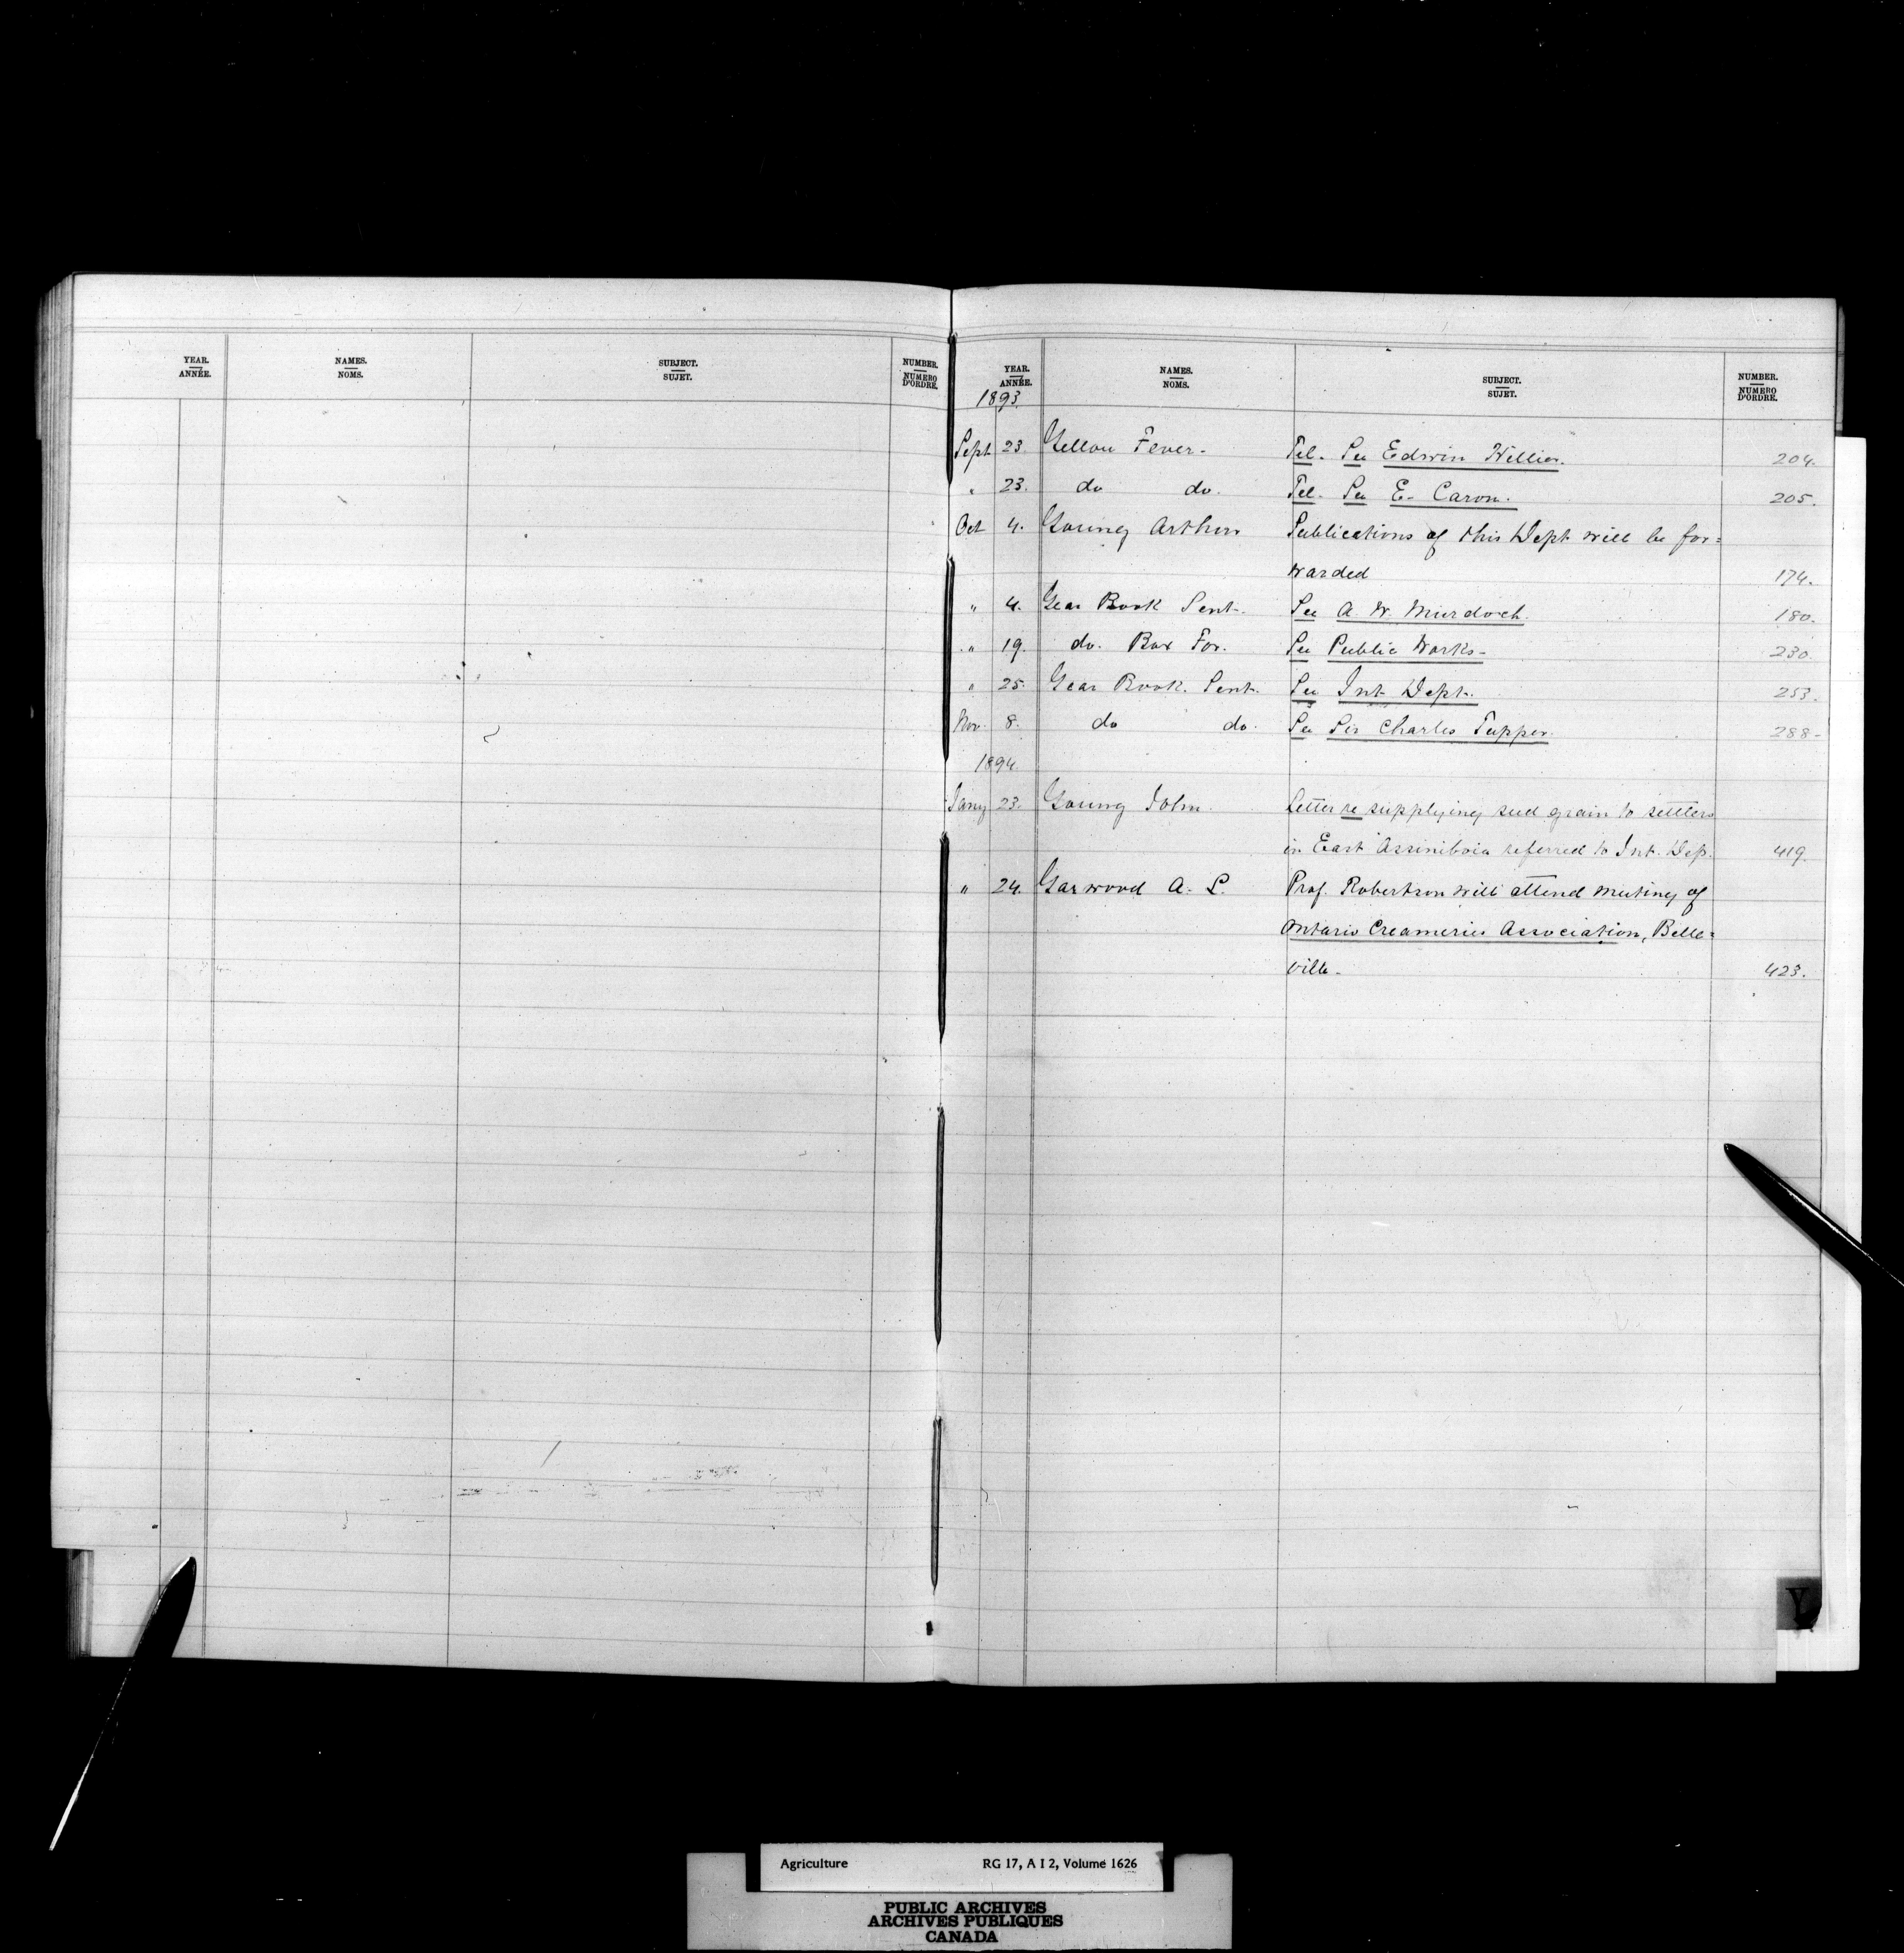 YEAR. NAMES. SUBJECT. NUMBER.
ANNÉE. NOMS. SUJET. NUMERO D'ORDRE.
YEAR. NAMES. SUBJECT. NUMBER.
ANNÉE. NOMS. SUJET. NUMERO D'ORDRE.
1893.
Sept 23 Yellow Fever. Tel. See Edwin Hillier. 204.
" 23. do do. Tel. See E. Caron. 205.
Oct 4. Young Arthur Publications of this Dept will be for=
warded 174.
" 4. Year Book Sent. See A. W. Murdoch. 180.
" 19. do. Box For. See Public Works. 230.
" 25. Year Book. Sent. See Int Dept. 253.
Nov. 8. do do. See Sir Charles Tupper. 288.
1894.
Jany 23. Young John. Letter re supplying seed grain to settlers
in East Assiniboia referred to Int. Dep. 419.
" 24. Yarwood A. S. Prof. Robertson will attend meeting of
Ontario Creameries Association, Belle=
ville. 423.
Y
Agriculture RG 17, A I 2, Volume 1626
PUBLIC ARCHIVES
ARCHIVES PUBLIQUES
CANADA